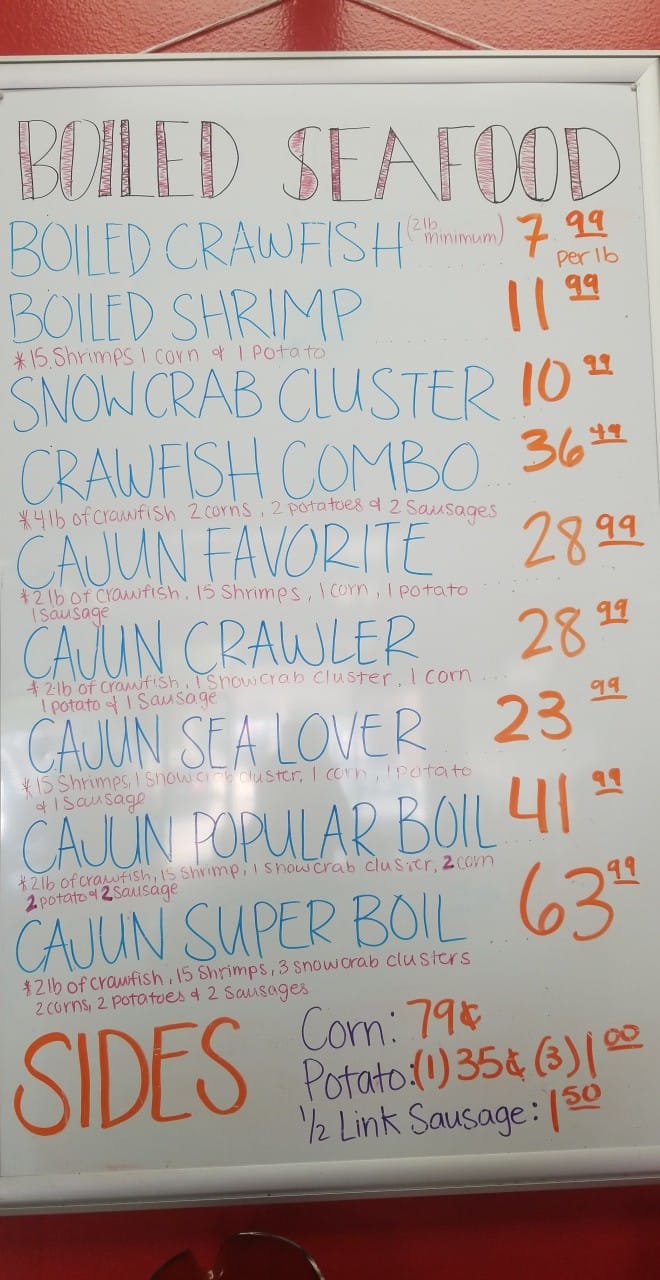 BOILED SEAFOOD
BOILED CRAWFISH (2lb minimum) 7 99 per lb
BOILED SHRIMP 11 99
*15 Shrimps 1 corn & 1 Potato
SNOWCRAB CLUSTER 10 99
CRAWFISH COMBO 36 49
*4lb of crawfish 2 corns, 2 potatoes & 2 Sausages
CAJUN FAVORITE 28 99
*2lb of crawfish, 15 Shrimps, 1 corn, 1 potato
1 Sausage
CAJUN CRAWLER 28 99
*2lb of crawfish, 1 Snowcrab cluster, 1 corn
1 potato & 1 Sausage
CAJUN SEA LOVER 23 99
*15 Shrimps, 1 Snowcrab cluster, 1 corn, 1 potato
& 1 Sausage
CAJUN POPULAR BOIL 41 99
*2lb of crawfish, 15 Shrimp, 1 snowcrab cluster, 2 corn
2 potato & 2 Sausage
CAJUN SUPER BOIL 63 99
*2lb of crawfish, 15 Shrimps, 3 snowcrab clusters
2 corns, 2 potatoes & 2 Sausages
SIDES
Corn: 79¢
Potato: (1) 35¢ (3) 1 00
1/2 Link Sausage: 1 50